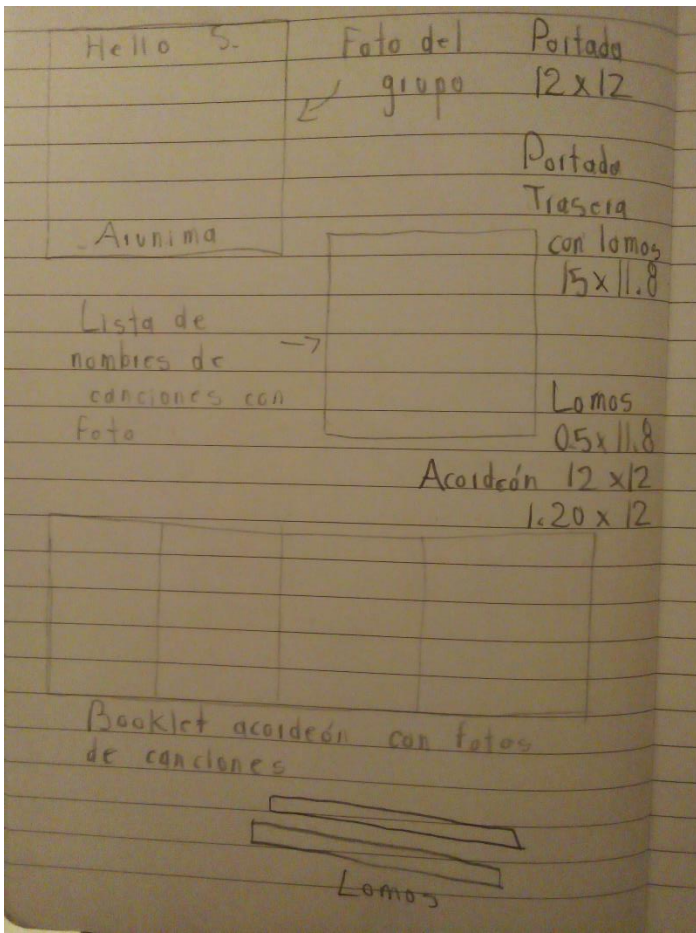 Hello S.
Foto del
grupo
Portada
12x12
Portada
Trasera
con lomos
15x11.8
Arunima
Lista de
nombres de
canciones con
foto
Lomos
0.5x11.8
Acordeón 12x12
1.20x12
Booklet acordeón con fotos
de canciones
Lomos